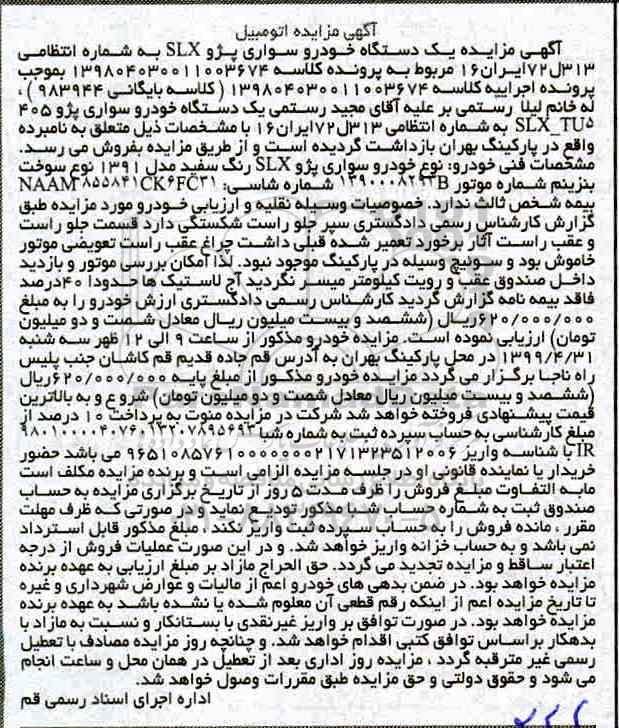 آگهی مزایده اتومبیل
آگهی مزایده یک دستگاه خودرو سواری پژو SLX به شماره انتظامی
۳۱۳ل۷۲ایران۱۶ مربوط به پرونده کلاسه ۱۳۹۸۰۴۰۳۰۰۱۱۰۰۳۶۷۴ بموجب
پرونده اجراییه کلاسه ۱۳۹۸۰۴۰۳۰۰۱۱۰۰۳۶۷۴ ( کلاسه بایگانی ۹۸۳۹۴۴ ) ،
له خانم لیلا رستمی بر علیه آقای مجید رستمی یک دستگاه خودرو سواری پژو ۴۰۵
SLX_TU۵ به شماره انتظامی ۳۱۳ل۷۲ایران۱۶ با مشخصات ذیل متعلق به نامبرده
واقع در پارکینگ بهران بازداشت گردیده است و از طریق مزایده بفروش می رسد.
مشخصات فنی خودرو: نوع خودرو سواری پژو SLX رنگ سفید مدل ۱۳۹۱ نوع سوخت
بنزینم شماره موتور ۱۳۹۰۰۰۸۲۹۳B شماره شاسی: NAAM۸۵۵۸۴۱CK۶FC۳۱
بیمه شخص ثالث ندارد. خصوصیات وسیله نقلیه و ارزیابی خودرو مورد مزایده طبق
گزارش کارشناس رسمی دادگستری سپر جلو راست شکستگی دارد قسمت جلو راست
و عقب راست آثار برخورد تعمیر شده قبلی داشت چراغ عقب راست تعویضی موتور
خاموش بود و سوئیچ وسیله در پارکینگ موجود نبود. لذا امکان بررسی موتور و بازدید
داخل صندوق عقب و رویت کیلومتر میسر نگردید آج لاستیک ها حدودا ۴۰درصد
فاقد بیمه نامه گزارش گردید کارشناس رسمی دادگستری ارزش خودرو را به مبلغ
۶۲۰/۰۰۰/۰۰۰ریال (ششصد و بیست میلیون ریال معادل شصت و دو میلیون
تومان) ارزیابی نموده است. مزایده خودرو مذکور از ساعت ۹ الی ۱۲ ظهر سه شنبه
۱۳۹۹/۴/۳۱ در محل پارکینگ بهران به آدرس قم جاده قدیم قم کاشان جنب پلیس
راه ناجا برگزار می گردد مزایده خودرو مذکور از مبلغ پایه ۶۲۰/۰۰۰/۰۰۰ریال
(ششصد و بیست میلیون ریال معادل شصت و دو میلیون تومان) شروع و به بالاترین
قیمت پیشنهادی فروخته خواهد شد شرکت در مزایده منوت به پرداخت ۱۰ درصد از
مبلغ کارشناسی به حساب سپرده ثبت به شماره شبا ۹۸۰۱۰۰۰۰۴۰۷۶۰۱۳۲۰۷۸۹۵۶۹۳
IR با شناسه واریز ۹۶۵۱۰۸۵۷۶۱۰۰۰۰۰۰۰۲۱۷۱۳۲۳۵۱۲۰۰۶ می باشد حضور
خریدار یا نماینده قانونی او در جلسه مزایده الزامی است و برنده مزایده مکلف است
مابه التفاوت مبلغ فروش را ظرف مدت ۵ روز از تاریخ برگزاری مزایده به حساب
صندوق ثبت به شماره حساب شبا مذکور تودیع نماید و در صورتی که ظرف مهلت
مقرر ، مانده فروش را به حساب سپرده ثبت واریز نکند ، مبلغ مذکور قابل استرداد
نمی باشد و به حساب خزانه واریز خواهد شد. و در این صورت عملیات فروش از درجه
اعتبار ساقط و مزایده تجدید می گردد. حق الحراج مازاد بر مبلغ ارزیابی به عهده برنده
مزایده خواهد بود. در ضمن بدهی های خودرو اعم از مالیات و عوارض شهرداری و غیره
تا تاریخ مزایده اعم از اینکه رقم قطعی آن معلوم شده یا نشده باشد به عهده برنده
مزایده خواهد بود. در صورت توافق بر واریز غیرنقدی با بستانکار و نسبت به مازاد با
بدهکار براساس توافق کتبی اقدام خواهد شد. و چنانچه روز مزایده مصادف با تعطیل
رسمی غیر مترقبه گردد ، مزایده روز اداری بعد از تعطیل در همان محل و ساعت انجام
می شود و حقوق دولتی و حق مزایده طبق مقررات وصول خواهد شد.
اداره اجرای اسناد رسمی قم